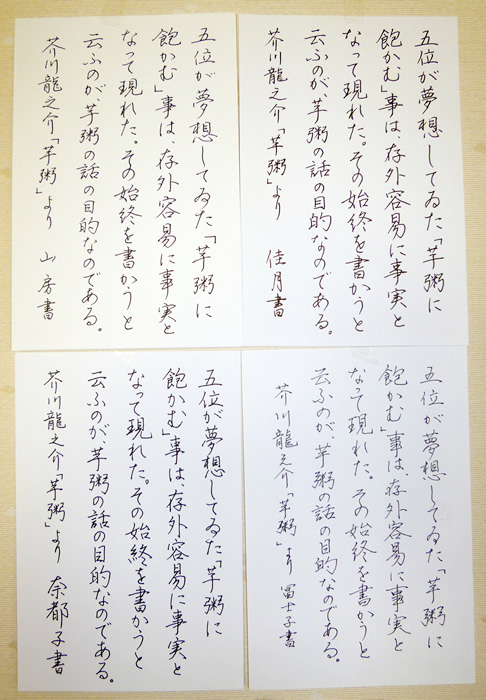 五位が夢想してゐた「芋粥に
飽かむ」事は、存外容易に事実と
なって現れた。その始終を書かうと
云ふのが、芋粥の話の目的なのである。
芥川龍之介「芋粥」より 佳月書
五位が夢想してゐた「芋粥に
飽かむ」事は、存外容易に事実と
なって現れた。その始終を書かうと
云ふのが、芋粥の話の目的なのである。
芥川龍之介「芋粥」より 山房書
五位が夢想してゐた「芋粥に
飽かむ」事は、存外容易に事実と
なって現れた。その始終を書かうと
云ふのが、芋粥の話の目的なのである。
芥川龍之介「芋粥」より 冨士子書
五位が夢想してゐた「芋粥に
飽かむ」事は、存外容易に事実と
なって現れた。その始終を書かうと
云ふのが、芋粥の話の目的なのである。
芥川龍之介「芋粥」より 奈都子書